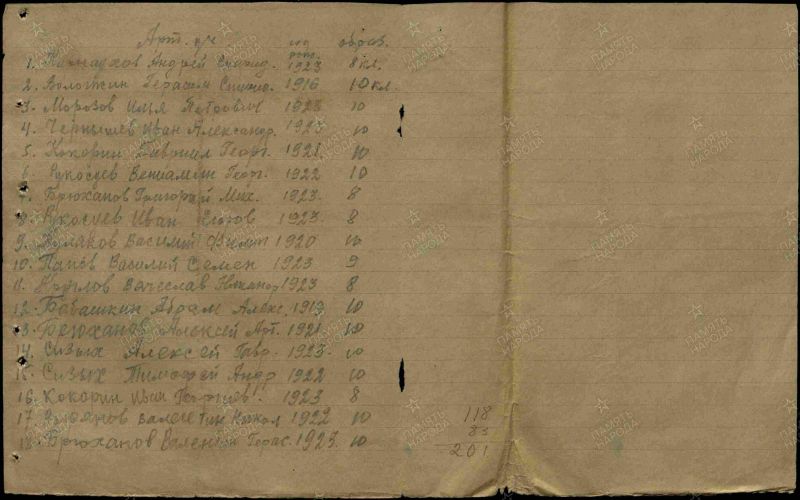 Арт. уч год рожд. образ.
1. Андрей 1923 8 кл.
2. Воложин Герасим 1916 10 кл.
3. Морозов Илья Петрович 1923 10
4. Чернышев Иван Александр. 1923 10
5. Кокорин Гавриил Георг. 1921 10
6. Рукосуев Вениамин Георг. 1922 10
7. Брюханов Григорий Мих. 1923 8
8. Рукосуев Иван 1923 8
9. Василий Филип 1920 10
10. Панов Василий Семен 1923 9
11. Вячеслав Никанор 1923 8
12. Бабашкин Абрам Алекс. 1919 10
13. Брюханов Алексей Арт. 1921 10
14. Сизых Алексей Гавр. 1923 10
15. Сизых Тимофей Андр 1922 10
16. Кокорин Иван Георгиев. 1923 8
17. Валентин Никол 1922 10
18. Брюханов Валентин Герас. 1923 10
118
83
201
ПАМЯТЬ НАРОДА